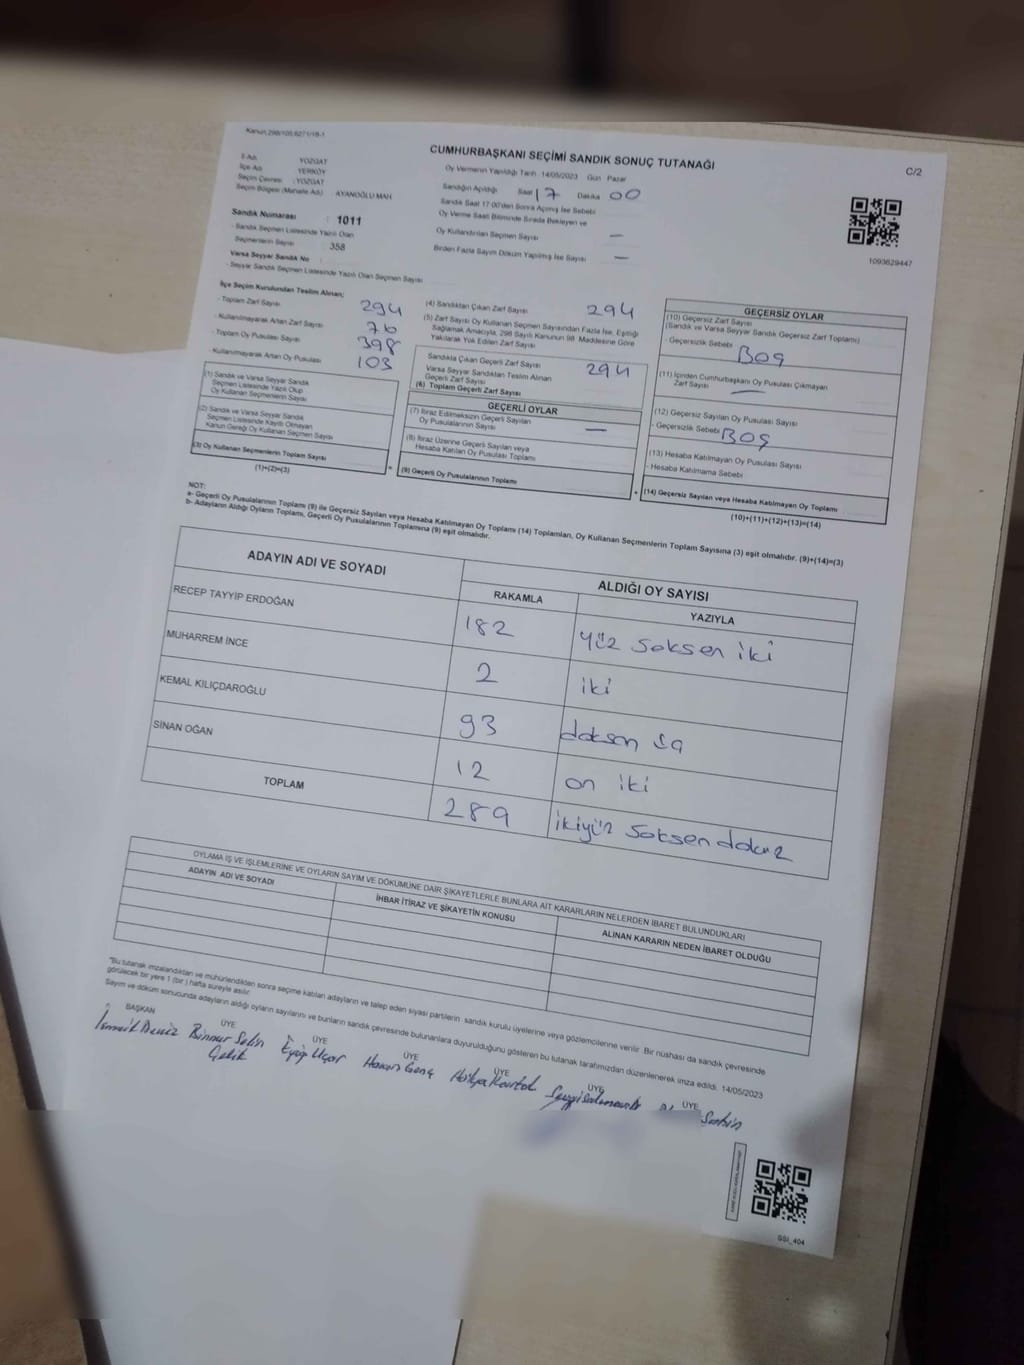 Kanun 298/105,6271/18-1
CUMHURBAŞKANI SEÇİMİ SANDIK SONUÇ TUTANAĞI
C/2
İl Adı YOZGAT
İlçe Adı YERKÖY
Seçim Çevresi :YOZGAT
Seçim Bölgesi (Mahalle Adı) AYANOĞLU MAH
Oy Vermenin Yapıldığı Tarih 14/05/2023 Gün Pazar
Sandığın Açıldığı Saat 17 Dakika 00
Sandık Saat 17:00'den Sonra Açılmış İse Sebebi
Oy Verme Saati Bitiminde Sırada Bekleyen ve
Oy Kullandırılan Seçmen Sayısı —
Birden Fazla Sayım Döküm Yapılmış İse Sayısı —
1093629447
Sandık Numarası : 1011
- Sandık Seçmen Listesinde Yazılı Olan
Seçmenlerin Sayısı : 358
Varsa Seyyar Sandık No :
- Seyyar Sandık Seçmen Listesinde Yazılı Olan Seçmen Sayısı
İlçe Seçim Kurulundan Teslim Alınan;
- Toplam Zarf Sayısı 294
- Kullanılmayarak Artan Zarf Sayısı 76
- Toplam Oy Pusulası Sayısı 398
- Kullanılmayarak Artan Oy Pusulası 103
(1) Sandık ve Varsa Seyyar Sandık
Seçmen Listesinde Yazılı Olup
Oy Kullanan Seçmenlerin Sayısı
(2) Sandık ve Varsa Seyyar Sandık
Seçmen Listesinde Kayıtlı Olmayan
Kanun Gereği Oy Kullanan Seçmen Sayısı
(3) Oy Kullanan Seçmenlerin Toplam Sayısı
(1)+(2)=(3)
(4) Sandıktan Çıkan Zarf Sayısı 294
(5) Zarf Sayısı Oy Kullanan Seçmen Sayısından Fazla İse, Eşitliği
Sağlamak Amacıyla, 298 Sayılı Kanunun 98. Maddesine Göre
Yakılarak Yok Edilen Zarf Sayısı
Sandıkta Çıkan Geçerli Zarf Sayısı 294
Varsa Seyyar Sandıktan Teslim Alınan
Geçerli Zarf Sayısı
(6) Toplam Geçerli Zarf Sayısı
GEÇERLİ OYLAR
(7) İtiraz Edilmeksizin Geçerli Sayılan
Oy Pusulalarının Sayısı —
(8) İtiraz Üzerine Geçerli Sayılan veya
Hesaba Katılan Oy Pusulası Toplamı
(9) Geçerli Oy Pusulalarının Toplamı
GEÇERSİZ OYLAR
(10) Geçersiz Zarf Sayısı
(Sandık ve Varsa Seyyar Sandık Geçersiz Zarf Toplamı)
- Geçersizlik Sebebi Boş
(11) İçinden Cumhurbaşkanı Oy Pusulası Çıkmayan
Zarf Sayısı —
(12) Geçersiz Sayılan Oy Pusulası Sayısı
- Geçersizlik Sebebi Boş
(13) Hesaba Katılmayan Oy Pusulası Sayısı
- Hesaba Katılmama Sebebi
(14) Geçersiz Sayılan veya Hesaba Katılmayan Oy Toplamı
(10)+(11)+(12)+(13)=(14)
NOT:
a- Geçerli Oy Pusulalarının Toplamı (9) ile Geçersiz Sayılan veya Hesaba Katılmayan Oy Toplamı (14) Toplamları, Oy Kullanan Seçmenlerin Toplam Sayısına (3) eşit olmalıdır. (9)+(14)=(3)
b- Adayların Aldığı Oyların Toplamı, Geçerli Oy Pusulalarının Toplamına (9) eşit olmalıdır.
ADAYIN ADI VE SOYADI
ALDIĞI OY SAYISI
RAKAMLA YAZIYLA
RECEP TAYYİP ERDOĞAN 182 yüz seksen iki
MUHARREM İNCE 2 iki
KEMAL KILIÇDAROĞLU 93 doksan
SİNAN OĞAN 12 on iki
TOPLAM 289 ikiyüz seksen dokuz
OYLAMA İŞ VE İŞLEMLERİNE VE OYLARIN SAYIM VE DÖKÜMÜNE DAİR ŞİKAYETLERLE BUNLARA AİT KARARLARIN NELERDEN İBARET BULUNDUKLARI
ADAYIN ADI VE SOYADI İHBAR İTİRAZ VE ŞİKAYETİN KONUSU ALINAN KARARIN NEDEN İBARET OLDUĞU
*Bu tutanak imzalandıktan ve mühürlendikten sonra seçime katılan adayların ve talep eden siyasi partilerin sandık kurulu üyelerine veya gözlemcilerine verilir. Bir nüshası da sandık çevresinde
görülecek bir yere 1 (bir) hafta süreyle asılır.
Sayım ve döküm sonucunda adayların aldığı oyların sayılarını ve bunların sandık çevresinde bulunanlara duyurulduğunu gösteren bu tutanak tarafımızdan düzenlenerek imza edildi. 14/05/2023
BAŞKAN ÜYE ÜYE ÜYE ÜYE ÜYE ÜYE
İsmail Deniz Binnur Selin Çelik Eyüp Uçar Hakan Genç Hülya Kartal Şahin
SSİ_404